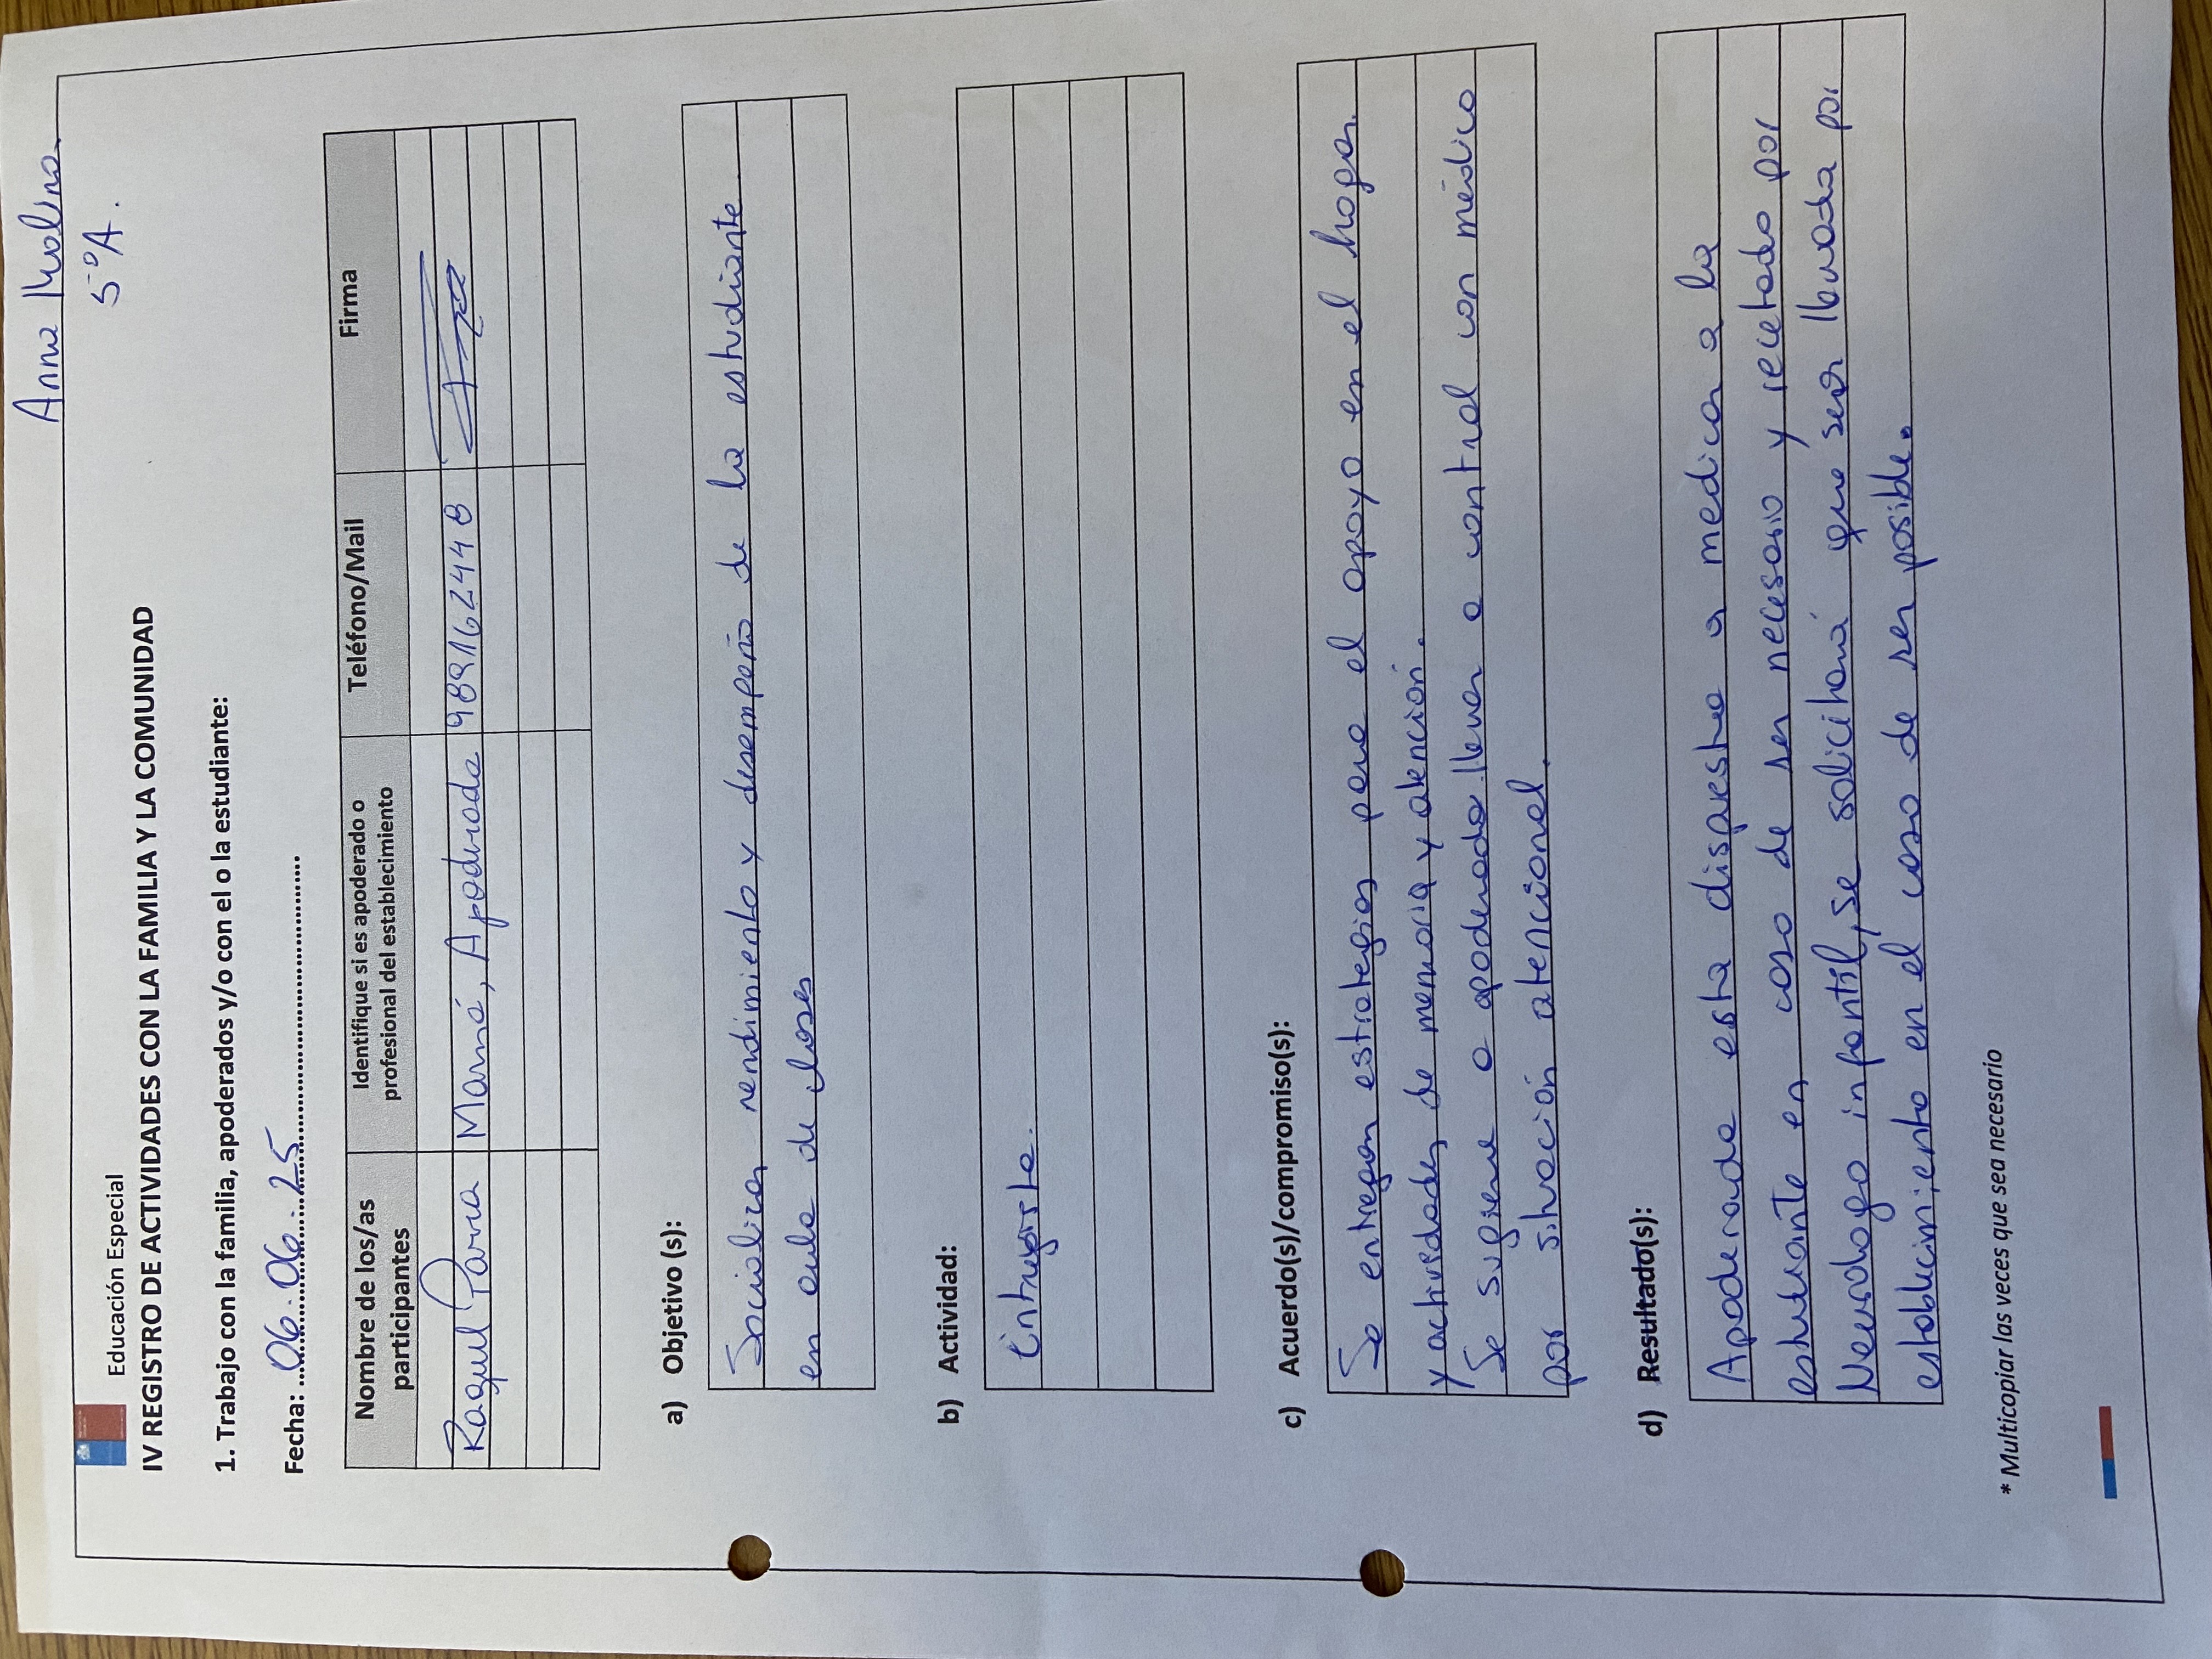 Anna Molina
5°A.
Educación Especial
IV REGISTRO DE ACTIVIDADES CON LA FAMILIA Y LA COMUNIDAD
1. Trabajo con la familia, apoderados y/o con el o la estudiante:
Fecha: 06.06.25
Nombre de los/as participantes | Identifique si es apoderado o profesional del establecimiento | Teléfono/Mail | Firma
Raquel Parra | Mamá, Apoderada | 989162448
a) Objetivo (s):
Socializar rendimiento y desempeño de la estudiante
en aula de clases
b) Actividad:
Entrevista.
c) Acuerdo(s)/compromiso(s):
Se entregan estrategias para el apoyo en el hogar.
y actividades de memoria y atención.
Se sugiere a apoderada llevar a control con médico
por situación atencional.
d) Resultado(s):
Apoderada esta dispuesta a medicar a la
estudiante en caso de ser necesario y recetado por
Neurologo infantil, se solicitará que sea llevada por
establecimiento en el caso de ser posible.
* Multicopiar las veces que sea necesario